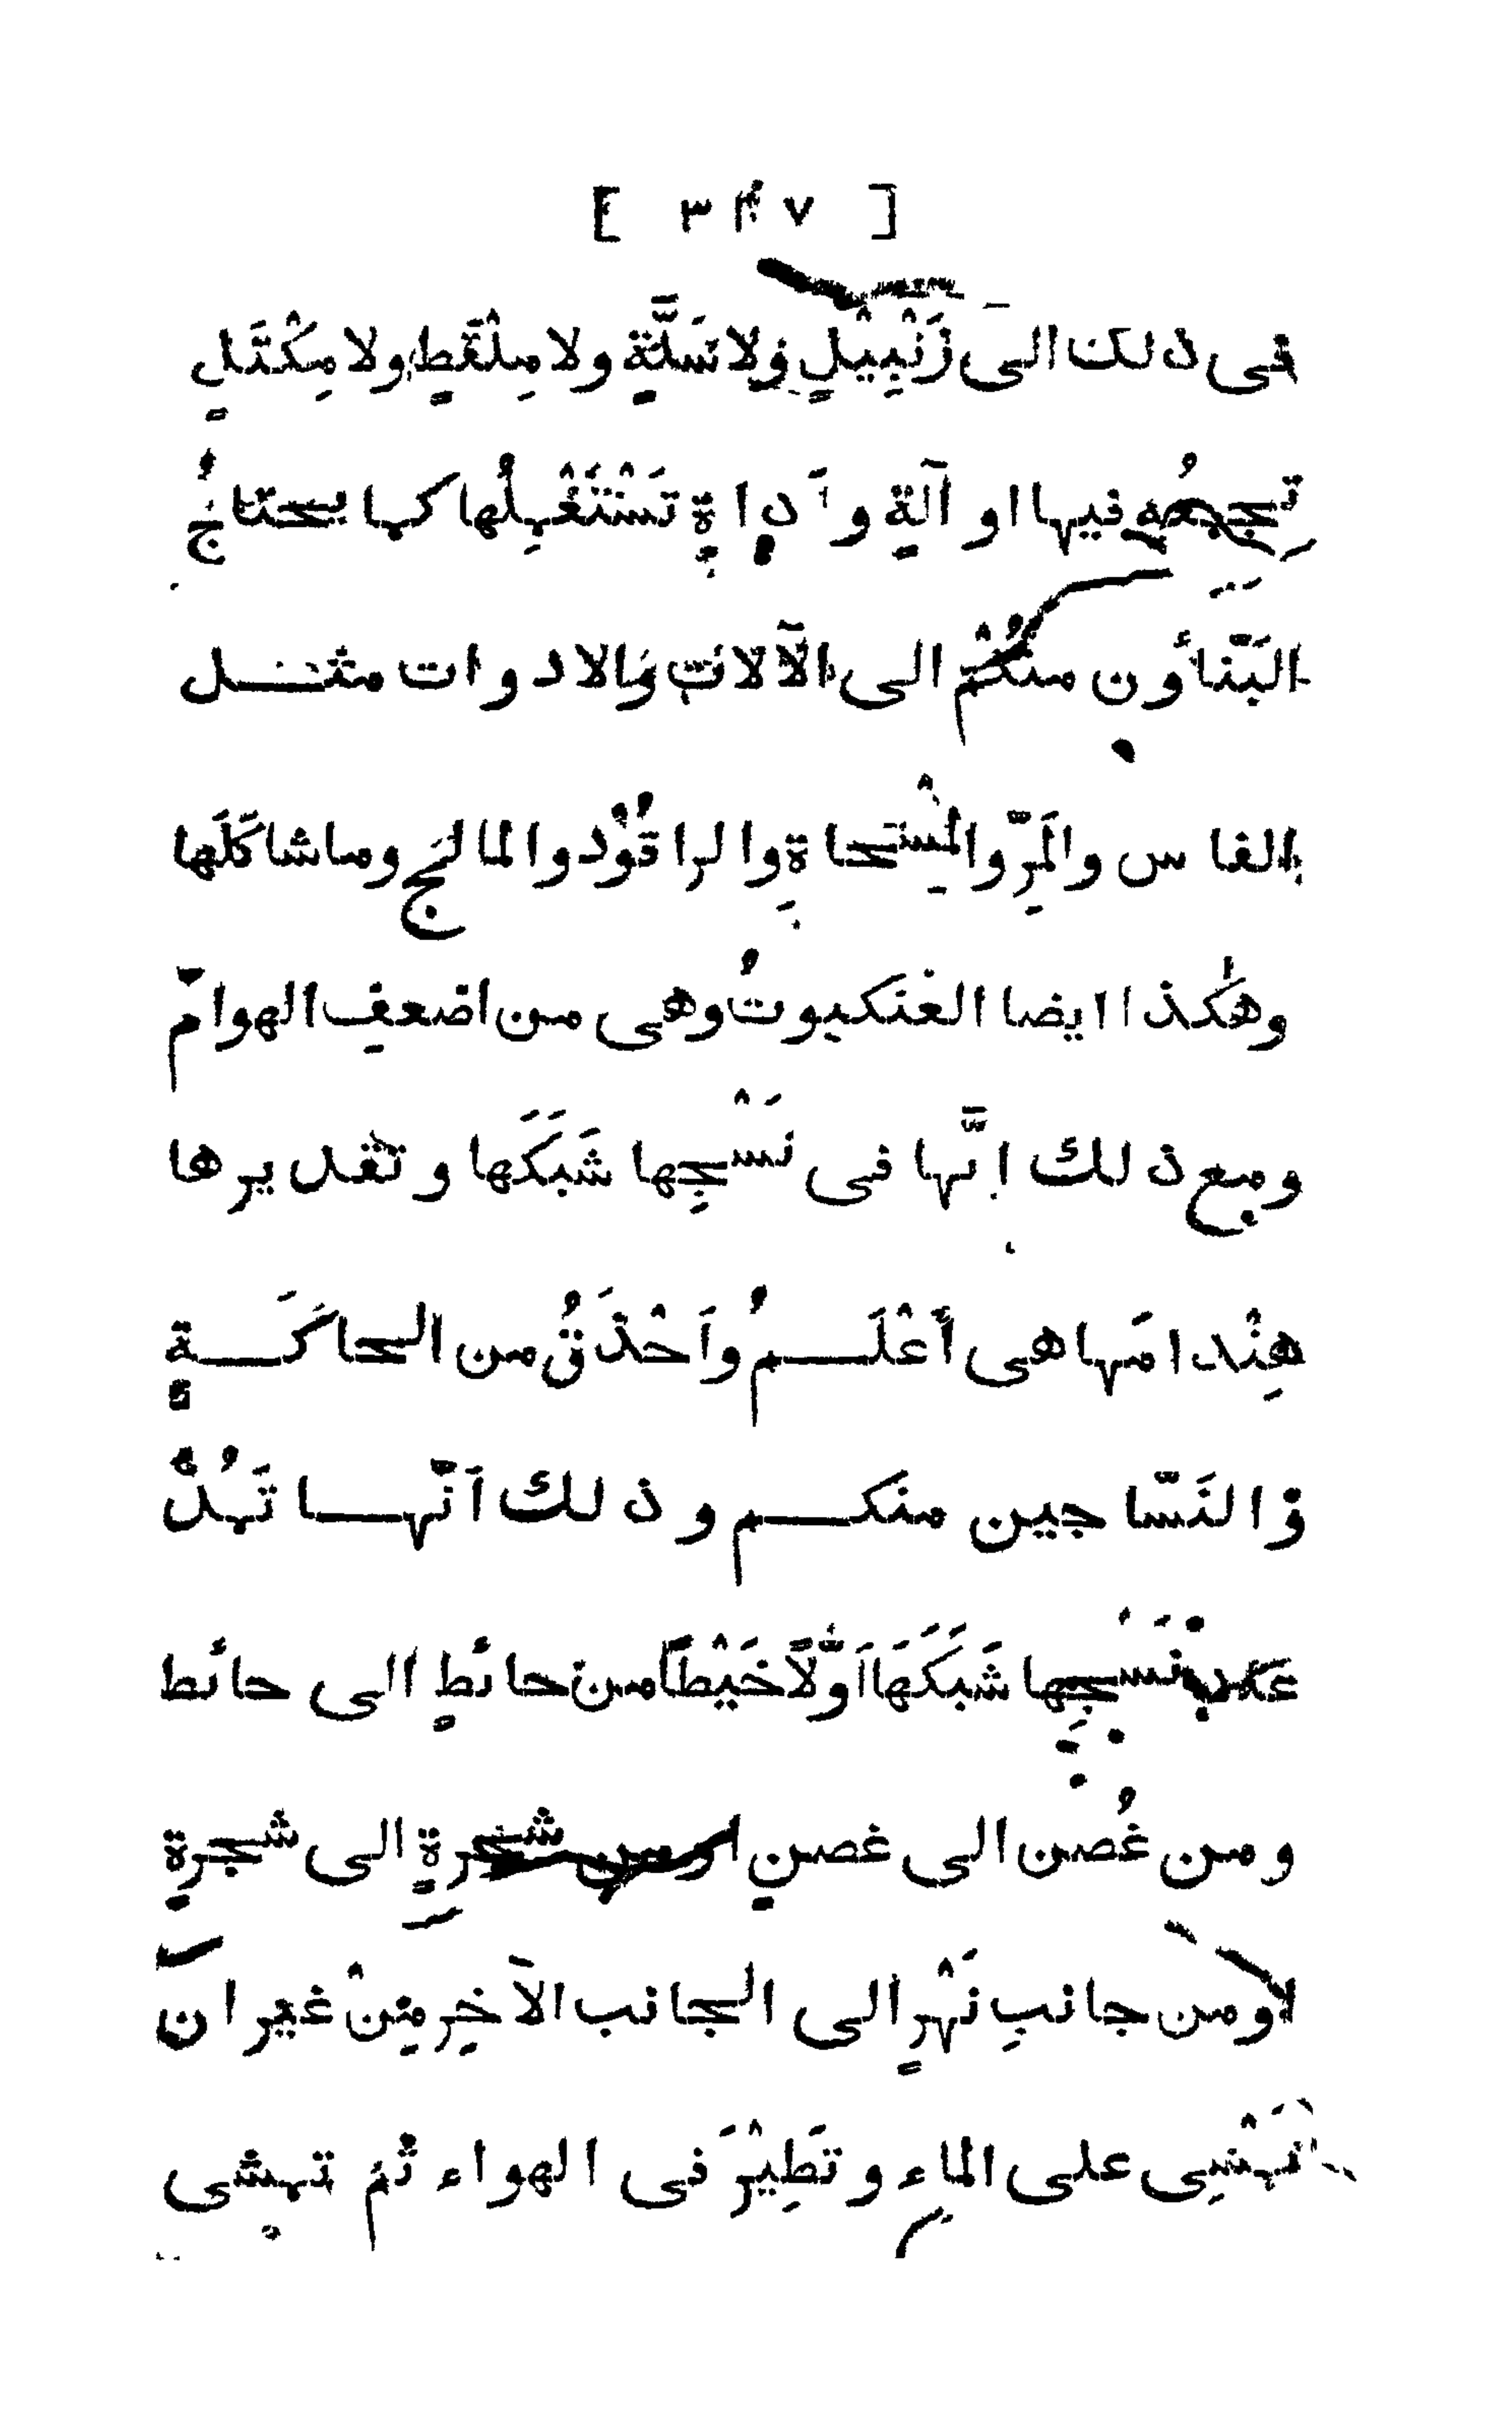 [ ٣٤٧ ]
فى ذلك الى زَنْبِيْلٍ ولا سَلَّةٍ ولا مِلْقَطٍ ولا مِكْتَلٍ
تجمعُه فيها او آلةٍ وأداةٍ تَسْتَعْمِلُها كما يحتاجُ
البَنّاؤن منكُمْ الى الآلات والادوات مثل
الفاس والمَرِّ والمِسْحاةِ والراقُوْد والمالَج وما شاكَلَها
وهٰكذا ايضا العنكبوتُ وهى من اضعفِ الهوامّ
ومع ذلك إنَّها فى نَسْجِها شَبَكَها وتقديرها
هِنْدامَها هى أَعْلَمُ واَحْذَقُ من الحاكَةِ
والنَسّاجين منكم وذلك اَنّها تَمُدُّ
عند نَسْجِها شَبَكَهَا اَوَّلاً خَيْطاً من حائطٍ الى حائط
ومن غُصن الى غصنٍ او من شجرةٍ الى شجرةٍ
او من جانبِ نَهْرٍ الى الجانب الآخِرِ مِنْ غير ان
تَمْشِى على الماءِ وتَطِيْرَ فى الهواء ثم تمشى